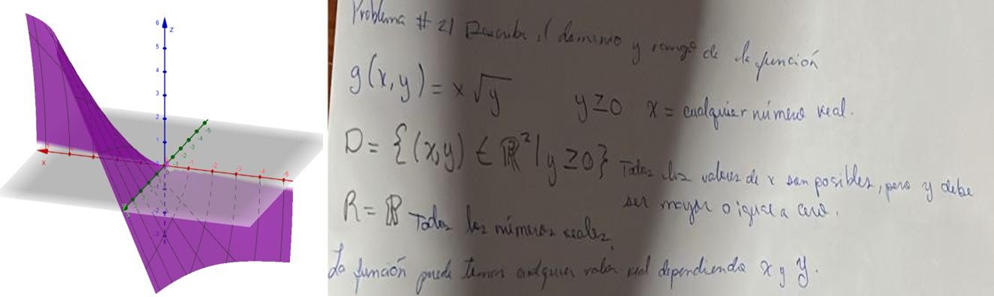 z
x
Problema # 21 Describe el dominio y rango de la función
g(x,y) = x√y y≥0 x = cualquier número real.
D = {(x,y) ∈ ℝ² | y ≥ 0} Todos los valores de x son posibles, pero y debe
ser mayor o igual a cero.
R = ℝ Todos los números reales.
La función puede tomar cualquier valor real dependiendo x y y.